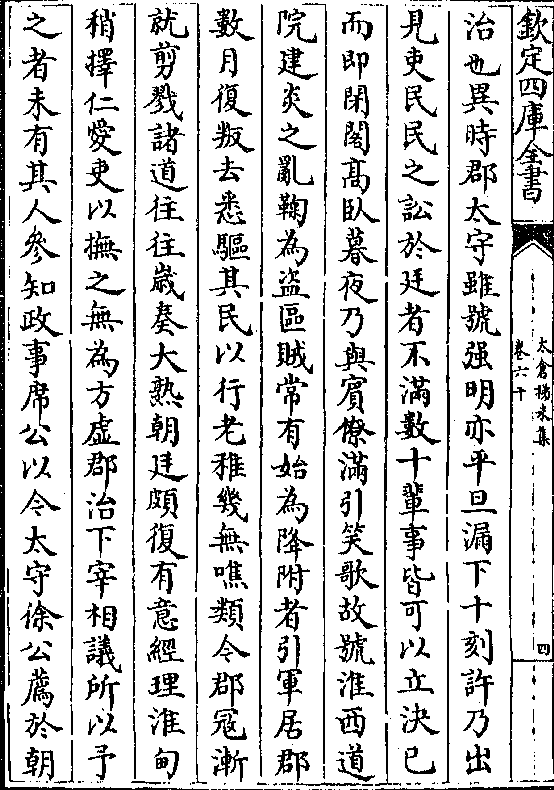 欽定四庫全書
太倉稊米集
卷六十
四
治也異時郡太守雖號强明亦平旦漏下十刻許乃出
見吏民民之訟於廷者不滿數十輩事皆可以立決已
而即閉閣髙臥暮夜乃與賓僚滿引笑歌故號淮西道
院建炎之亂鞠為盜區賊常有始為降附者引軍居郡
數月復叛去悉驅其民以行老稚幾無噍類今郡冦漸
就剪戮諸道往往嵗奏大熟朝廷頗復有意經理淮甸
稍擇仁愛吏以撫之無為方虛郡治下宰相議所以予
之者未有其人參知政事席公以今太守徐公薦於朝